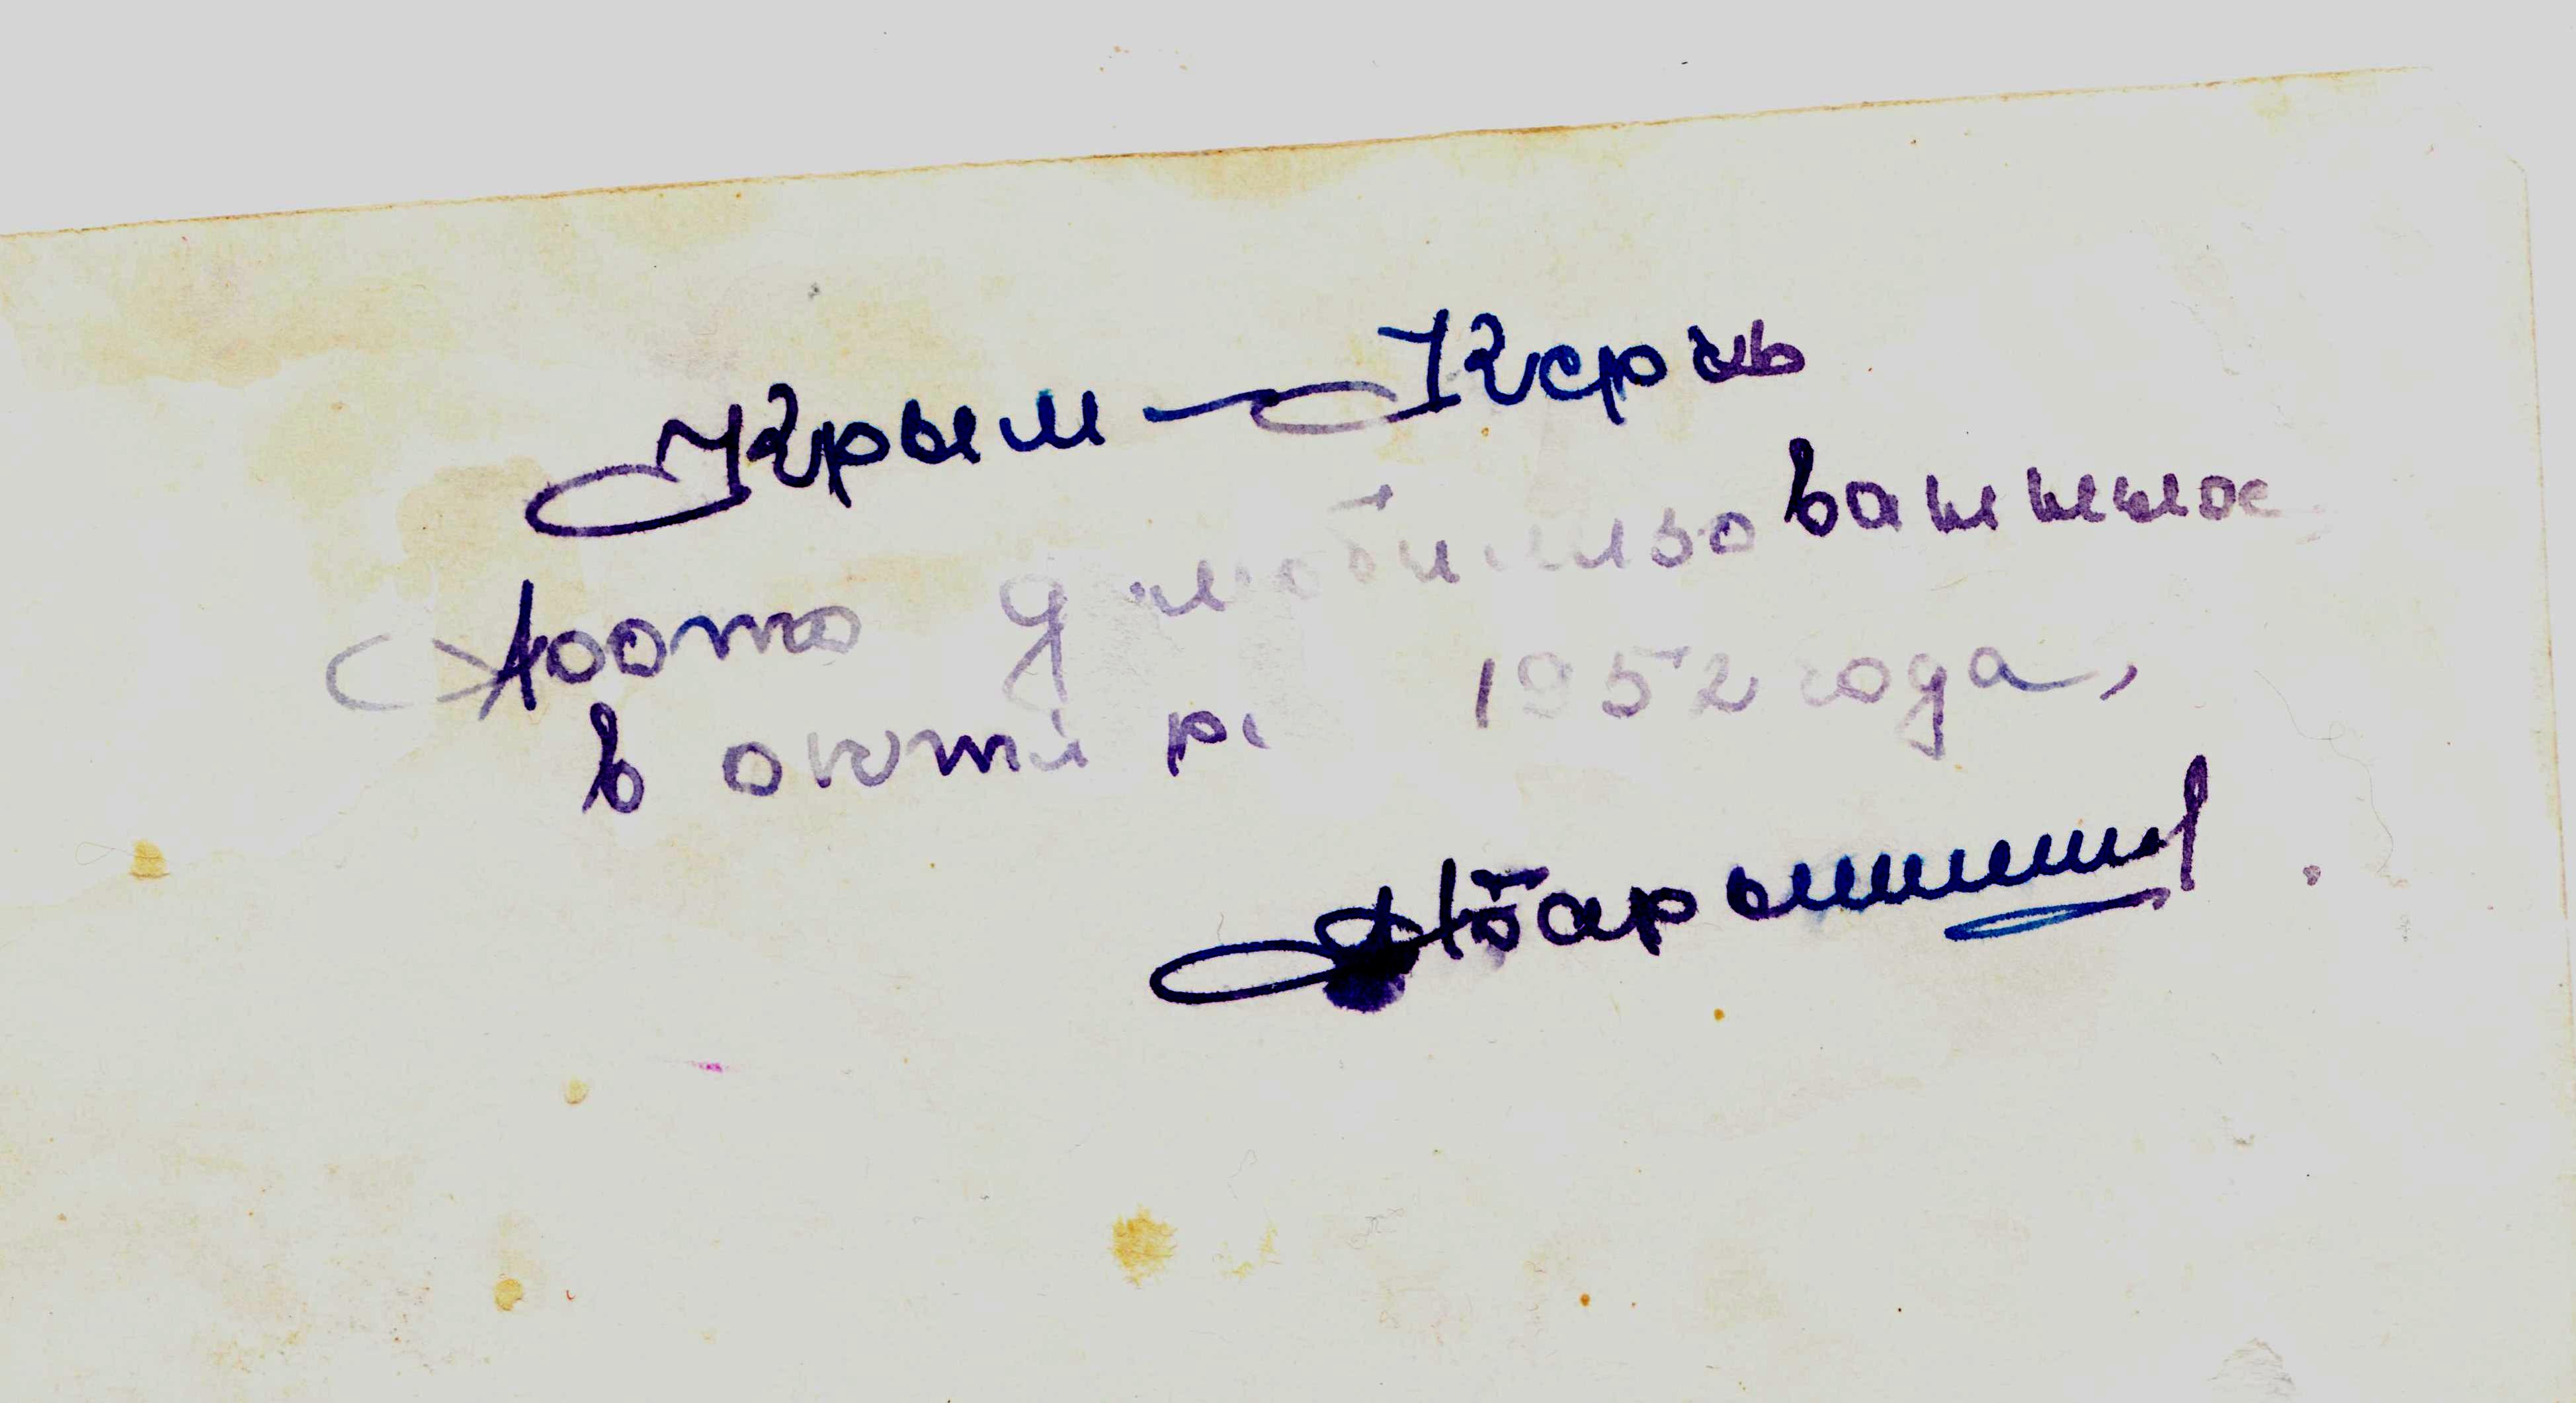 Крым — Керчь
Фото демобилизованных
в октябре 1952 года,